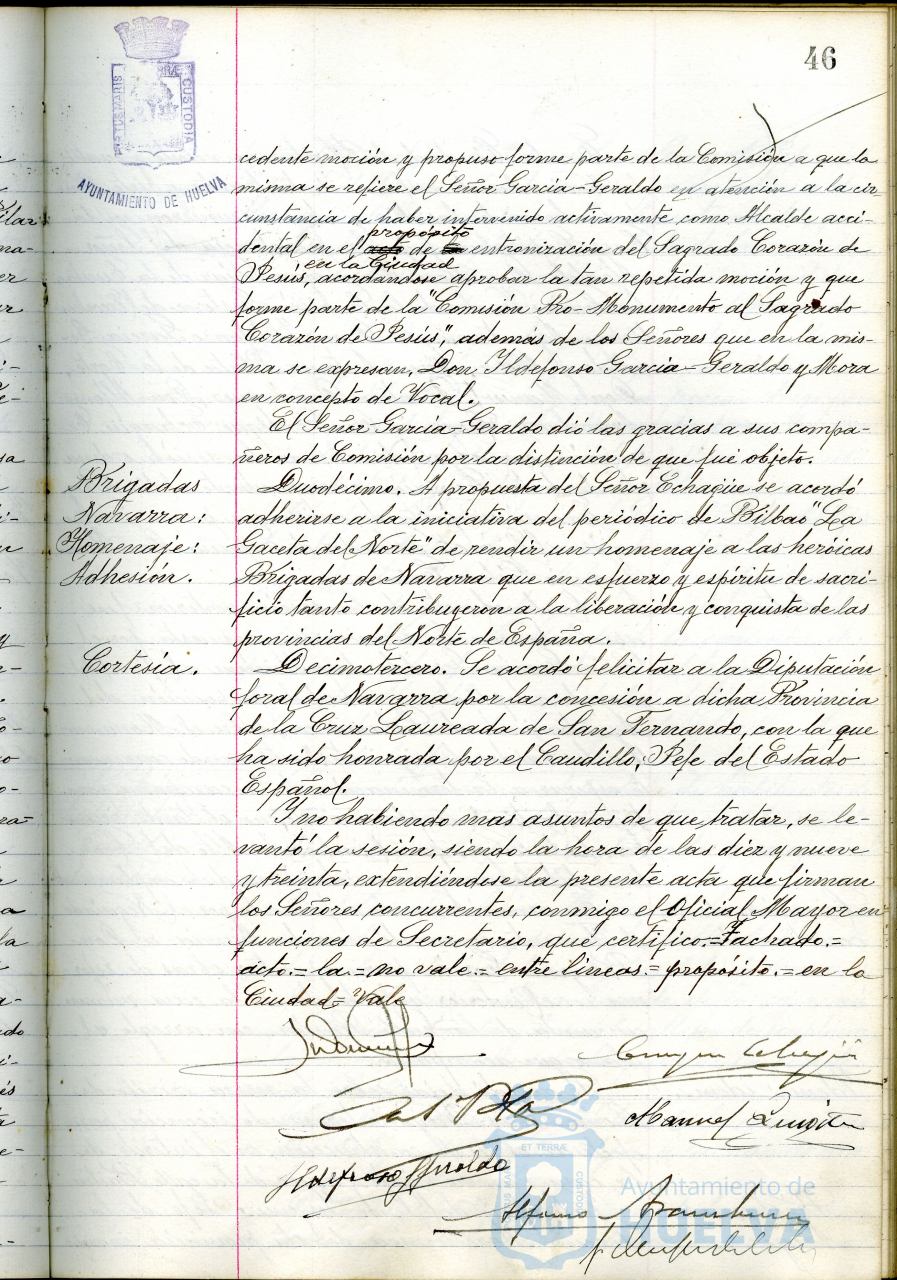 46
PORTUS MARIS ET TERRÆ CUSTODIA
AYUNTAMIENTO DE HUELVA
cedente moción y propuso forme parte de la Comisión a que la
misma se refiere el Señor García-Geraldo en atención a la cir
cunstancia de haber intervenido activamente como Alcalde acci-
propósito
dental en el acto de la entronización del Sagrado Corazón de
en la Ciudad
Jesús, acordándose aprobar la tan repetida moción y que
forme parte de la "Comisión Pro-Monumento al Sagrado
Corazón de Jesús", además de los Señores que en la mis-
ma se expresan, Don Ildefonso García-Geraldo y Mora
en concepto de Vocal.
El Señor García-Geraldo dió las gracias a sus compa-
ñeros de Comisión por la distinción de que fué objeto.
Brigadas
Navarra:
Homenaje:
Adhesión.
Duodécimo. A propuesta del Señor Echagüe se acordó
adherirse a la iniciativa del periódico de Bilbao "La
Gaceta del Norte" de rendir un homenaje a las heróicas
Brigadas de Navarra que en esfuerzo y espíritu de sacri-
ficio tanto contribuyeron a la liberación y conquista de las
provincias del Norte de España.
Cortesía.
Decimotercero. Se acordó felicitar a la Diputación
foral de Navarra por la concesión a dicha Provincia
de la Cruz Laureada de San Fernando, con la que
ha sido honrada por el Caudillo, Jefe del Estado
Español.
Y no habiendo mas asuntos de que tratar, se le-
vantó la sesión, siendo la hora de las diez y nueve
y treinta, extendiéndose la presente acta que firman
los Señores concurrentes, conmigo el Oficial Mayor en
funciones de Secretario, que certifico.=Tachado.=
acto.=la=no vale.=entre líneas.=propósito.=en la
Ciudad=Vale
Manuel
Ildefonso G Geraldo
Alfonso
ET TERRÆ
CUSTODIA
Ayuntamiento de
HUELVA